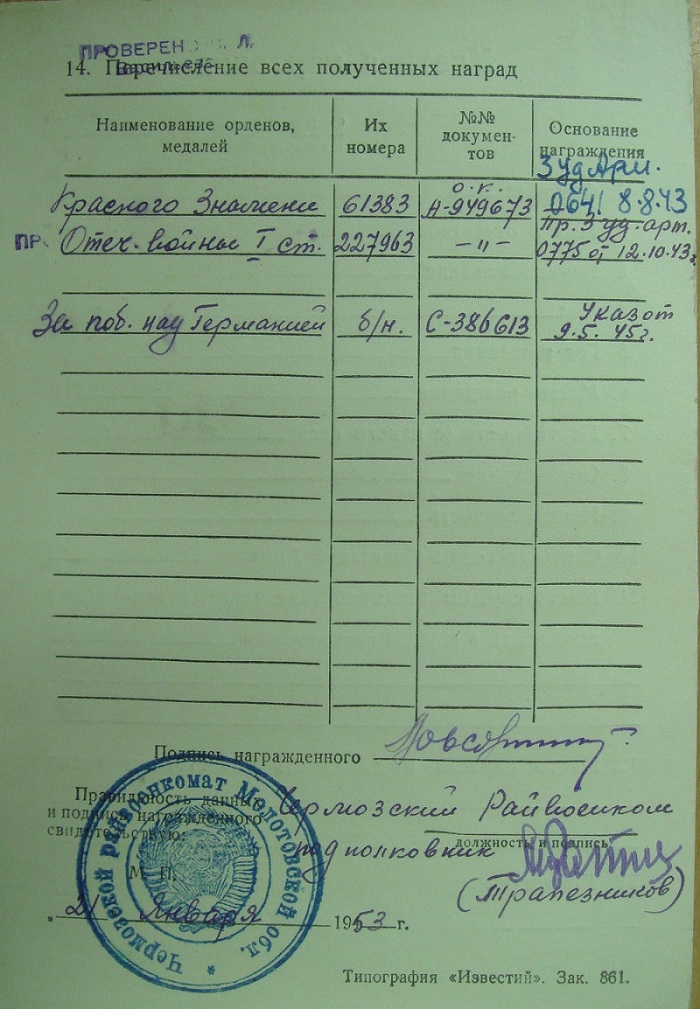 ПРОВЕРЕНО
14. Перечисление всех полученных наград
Наименование орденов, медалей
Их номера
№№ докумен-тов
Основание награждения
3 уд Арм.
о.к.
Красного Знамени 61383 А-949673 0641 8.8.43
Пр. 3 уд. арт.
Отеч. войны I ст. 227963 —"— 0775 от 12.10.43г
За поб. над Германией б/н. С-386613 Указ от
9.5.45г.
Подпись награжденного
Правильность данных
и подпись награжденного
свидетельствую:
Чермозский Райвоенком
должность и подпись
подполковник
М. П.
(Трапезников)
„21 Января 1953 г.
Чермозский райвоенкомат Молотовской обл. *
Типография «Известий». Зак. 861.